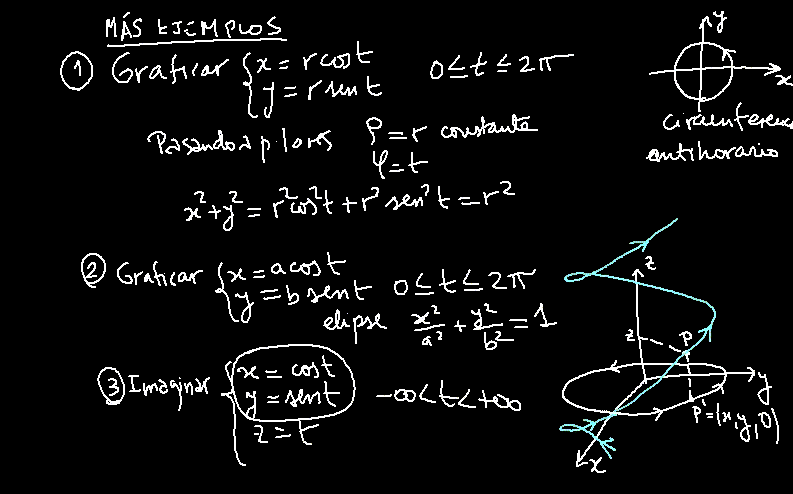 MÁS EJEMPLOS
① Graficar { x = r cos t
y = r sen t
0 ≤ t ≤ 2π
y
x
circunferencia
antihorario
Pasando a polares ρ = r constante
φ = t
x² + y² = r² cos² t + r² sen² t = r²
② Graficar { x = a cos t
y = b sen t
0 ≤ t ≤ 2π
elipse x²/a² + y²/b² = 1
③ Imaginar { x = cos t
y = sen t
z = t
-∞ < t < +∞
z
z
P
y
P' = (x, y, 0)
x